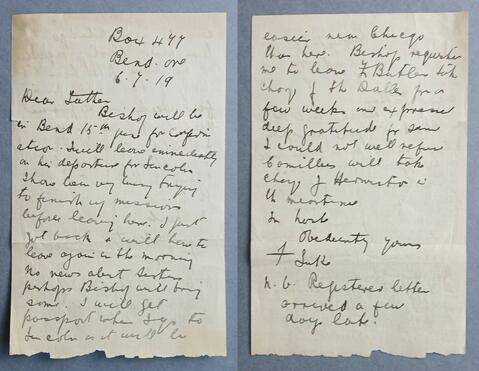 Box 477
Bend. Ore
6.7.19
Dear Father
Bishop will be
in Bend 15th for
I will leave immediately
on his departure for Lincoln
I have been very busy trying
to finish my missions
before leaving here. I just
got back & will have to
leave again in the morning
No news about Sisters
perhaps Bishop will bring
some. I will get
passport when I go to
Lincoln as it will be
easier near Chicago
than here. Bishop requested
me to leave Fr Butler take
charge of The Dalles for a
few weeks and expressed
deep gratitude for same
I could not well refuse
Camillus will take
charge of Hermiston in
the meantime
In haste
Obediently yours
† Luke
N.B. Registered letter
arrived a few
days late.